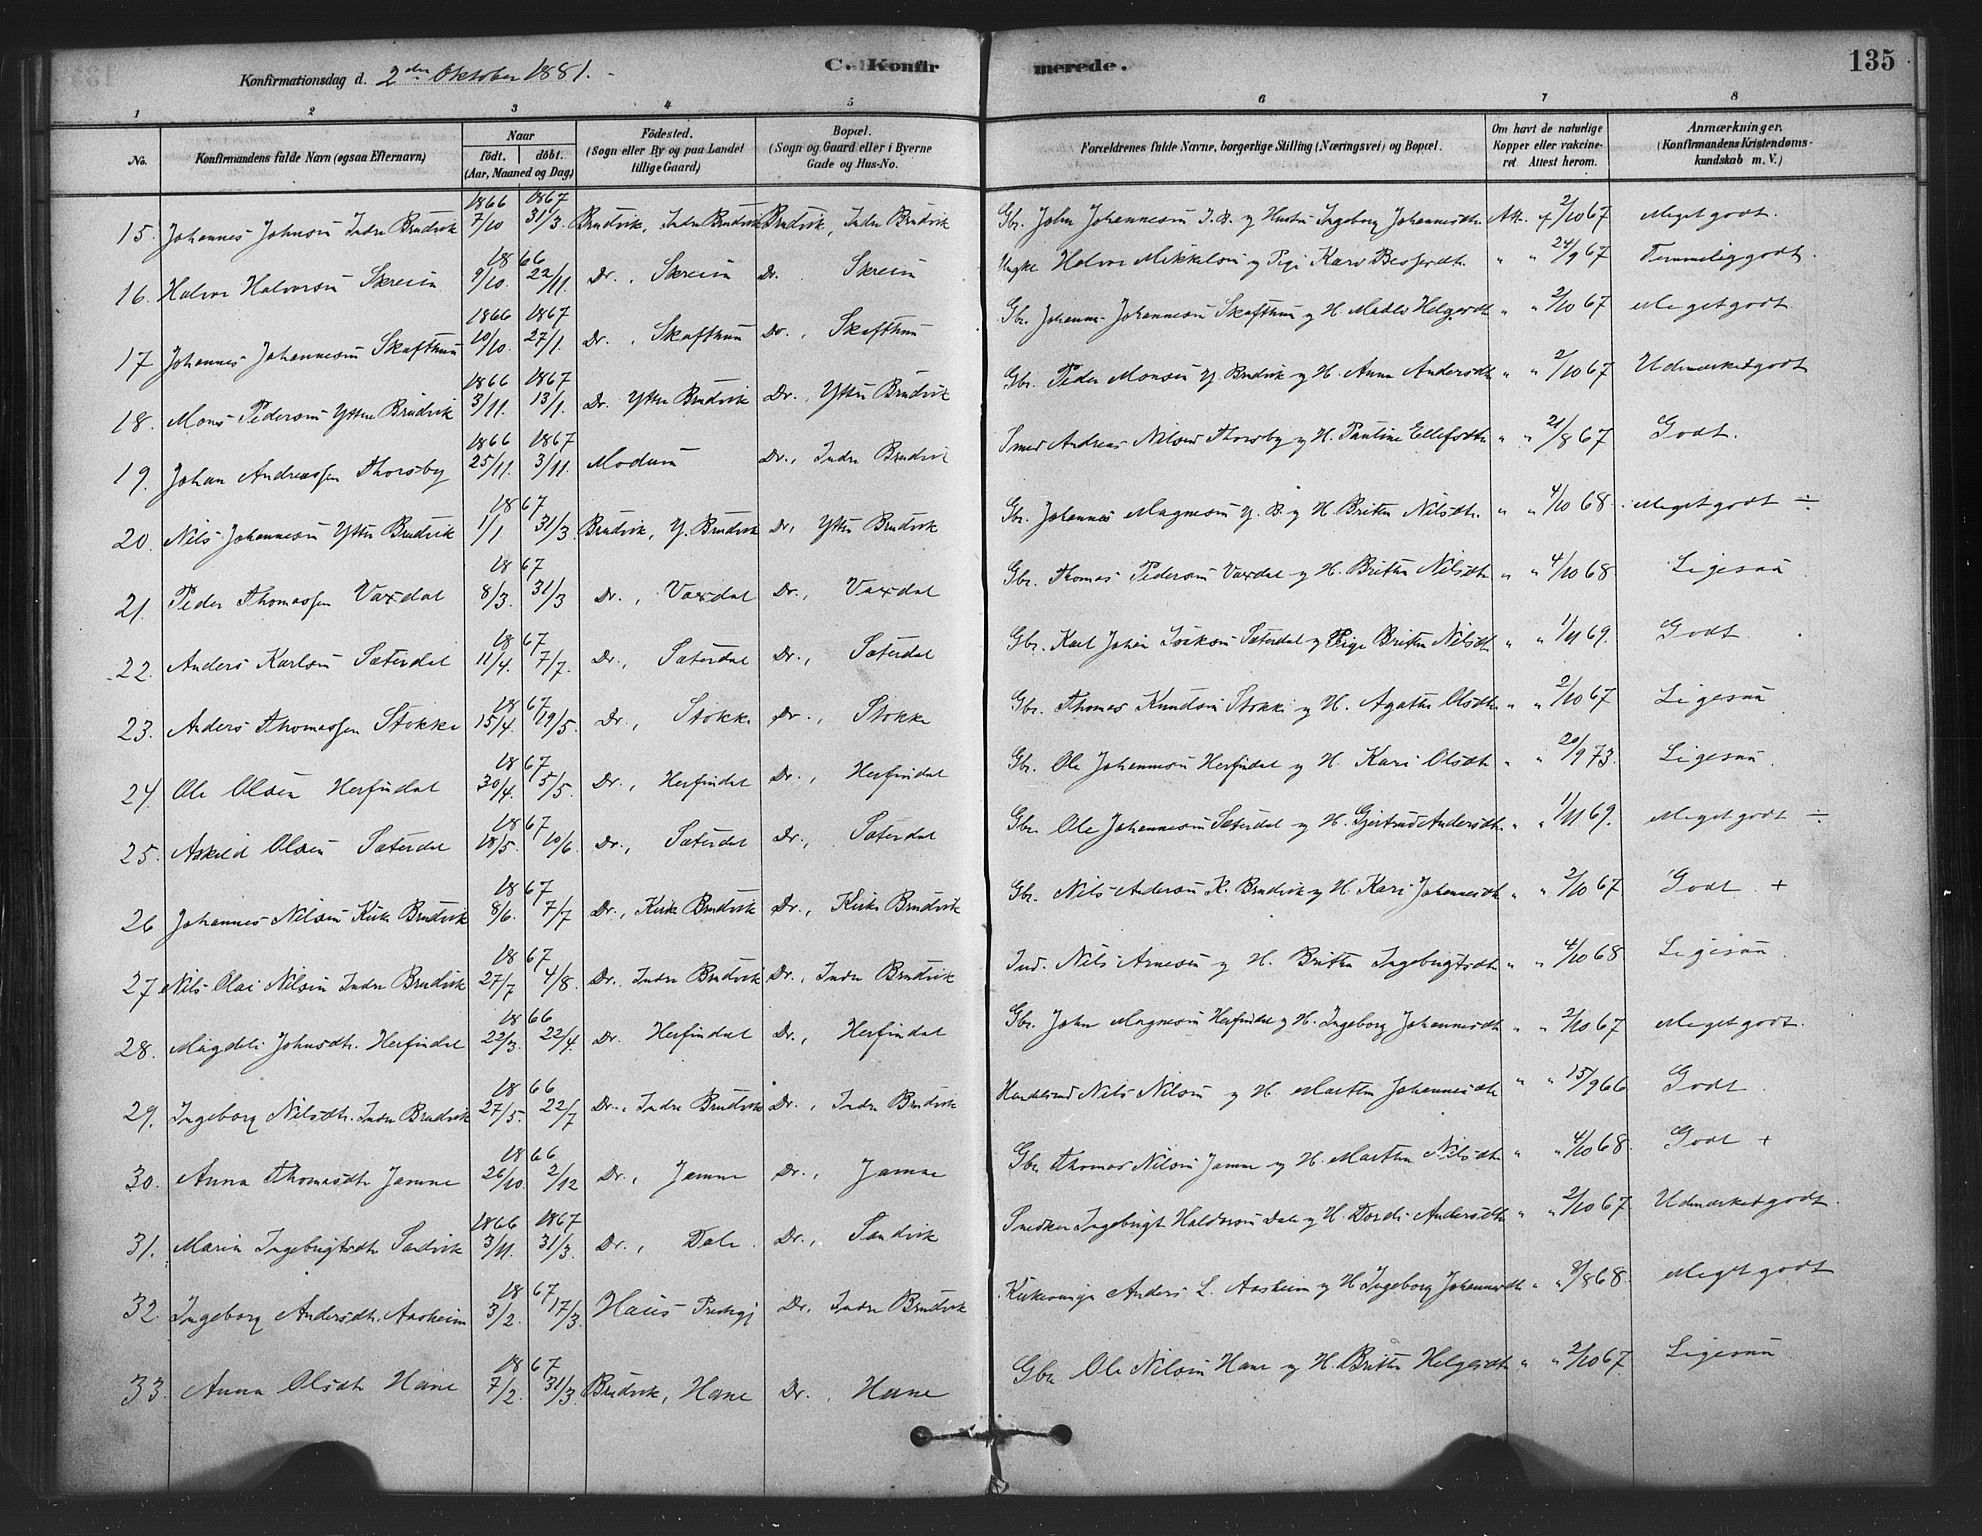 Konfirmationsdag d. 2den Oktober 1881.
C. Konfirmerede.
135
1 2 3 4 5 6 7 8
No. Konfirmandens fulde Navn (ogsaa Efternavn) Naar födt. döbt. (Aar, Maaned og Dag) Födested. (Sogn eller By og paa Landet tillige Gaard) Bopæl. (Sogn og Gaard eller i Byerne Gade og Hus-No. Forældrenes fulde Navne, borgerlige Stilling (Næringsvei) og Bopæl. Om havt de naturlige Kopper eller vakcineret Attest herom. Anmærkninger. (Konfirmandens Kristendomskundskab m. V.)
15. Johannes Johnsen Indre Brudvik 1866 7/10 1867 31/3. Brudvik, Indre Brudvik Brudvik, Indre Brudvik Gbr. John Johannesen I. B. og Hustru Ingeborg Johannesdtr. Att. 2/10 67 Meget godt.
16. Halvor Halvorsen Skreien 1866 9/10. 22/11. Do., Skreien Do. Skreien Ungke Halvor Mikkelsen og Pige Kari " " 24/9 67 Temmelig godt.
17 Johannes Johannesen Skafthun 1866 10/10. 1867 27/1. Do., Skafthun Do., Skafthun Gbr. Johannes Johannesen Skafthun og H. Madli Helgesdtr " " 2/10 67 Meget godt
18. Mons Pedersen Yttre Brudvik 1866 3/11. 1867 13/1. Do. Yttre Brudvik Do., Yttre Brudvik Gbr. Peder Monsen Y. Brudvik og H. Anna Andersdtr " " 2/10 67 Udmærket godt
19. Johan Andreassen Thorsby 1866 25/11. 1867 3/11. Modum Do., Indre Brudvik Smed Andreas Nilsen Thorsby og H. Pauline Ellefsdtr " " 21/8 67 Godt.
20. Nils Johannesen Yttre Brudvik 1867 1/1. 31/3. Brudvik, Y. Brudvik Do, Yttre Brudvik Gbr. Johannes Magnesen Y. B. og H. Britha Nilsdtr. " " 4/10 68. Meget godt ÷
21. Peder Thomassen Vaxdal 1867 8/3. 31/3 Do., Vaxdal Do., Vaxdal Gbr. Thomas Pedersen Vaxdal og H. Britha Nilsdtr " " 4/10 68 Ligesaa
22. Anders Karlsen Sæterdal 1867 11/4. 7/7. Do., Sæterdal Do., Sæterdal Gbr. Karl Johan Isaksen Sæterdal og Pige Britha Nilsdtr " " 1/11 69. Godt.
23. Anders Thomassen Stokke 1867 15/4. 19/5. Do., Stokke Do., Stokke Gbr. Thomas Knudsen Stokke og H. Agatha Olsdtr " " 2/10 67 Ligesaa
24 Ole Olsen Herfindal 1867 30/4. 5/5. Do., Herfindal Do., Herfindal Gbr. Ole Johannesen Herfindal og H. Kari Olsdtr " " 20/9 73. Ligesaa.
25. Askild Olsen Sæterdal 1867 18/5. 10/6. Do., Sæterdal Do., Sæterdal Gbr. Ole Johannesen Sæterdal og H. Gjertrud Andersdtr " " 1/11 69. Meget godt ÷
26 Johannes Nilsen Kirke Brudvik 1867 8/6. 7/7 Do., Kirke Brudvik Do., Kirke Brudvik Gbr. Nils Andersen K. Brudvik og H. Kari Johannesdtr " " 2/10 67 Godt. +
27. Nils Olai Nilsen Indre Brudvik 1867 27/7 4/8. Do., Indre Brudvik Do., Indre Brudvik Ind. Nils Arnesen og H. Britha Ingebrigtsdtr " " 4/10 68 Ligesaa
28. Magdeli Johnsdtr. Herfindal 1866 22/3. 22/4. Do. Herfindal Do., Herfindal Gbr. John Magnesen Herfindal og H. Ingeborg Johannesdtr " " 2/10 67 Meget godt.
29. Ingeborg Nilsdtr. Indre Brudvik 1866 27/5. 22/7 Do., Indre Brudvik Do., Indre Brudvik Handelsmd Nils Nilsen og H. Martha Johannesdtr " " 15/9 66 Godt
30. Anna Thomasdtr Jamne 1866 26/10. 2/12 Do., Jamne Do., Jamne Gbr. Thomas Nilsen Jamne og H. Martha Nilsdtr " " 4/10 68. Godt +
31. Maria Ingebrigtsdtr Sandvik 1866 3/11. 1867 31/3. Do., Dale. Do., Sandvik Snedker Ingebrigt Haldorsen Dale og H. Dordi Andersdtr " " 2/10 67. Udmærket godt.
32. Ingeborg Andersdtr. Aasheim 1867 3/2. 17/3. Haus Prestgj Do., Indre Brudvik Kirkesanger Anders L. Aasheim og H. Ingeborg Johannesdtr " " 8/8 68. Meget godt
33. Anna Olsdtr Hane 1867 7/2. 31/3. Brudvik, Hane Do., Hane Gbr Ole Nilsen Hane og H. Britha Helgesdtr " " 2/10 67. Ligesaa